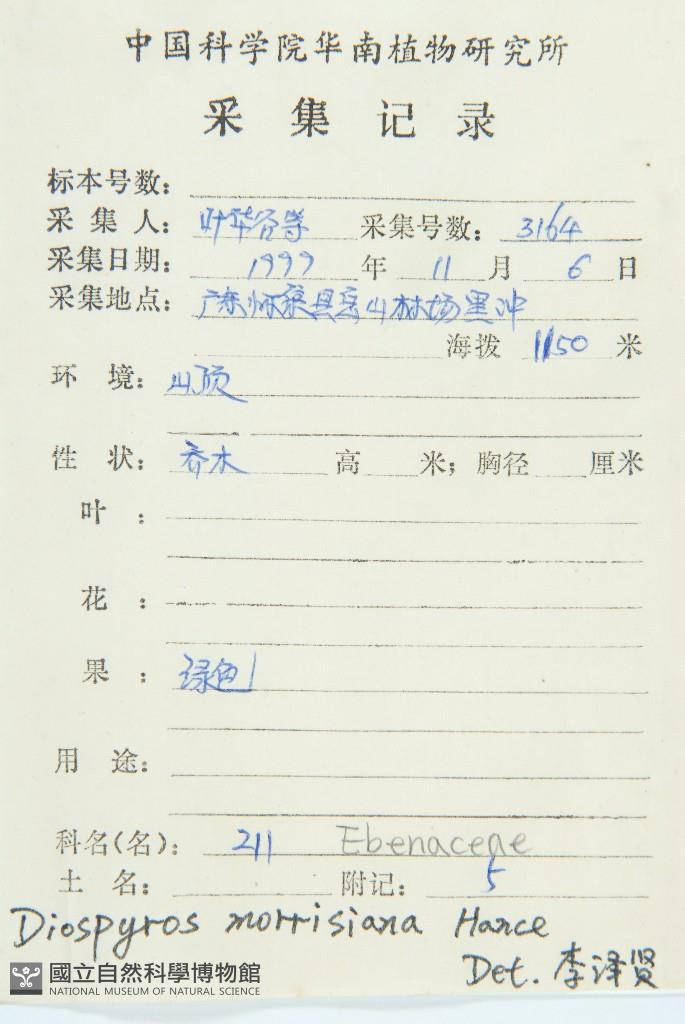 中国科学院华南植物研究所
采集记录
标本号数：
采集人： 叶华谷等 采集号数： 3164
采集日期： 1999 年 11 月 6 日
采集地点： 广东怀集县 山林场黑冲
海拨 1150 米
环境： 山顶
性状： 乔木 高 米；胸径 厘米
叶：
花：
果： 绿色
用途：
科名(名)： 211 Ebenaceae
土名： 附记： 5
Diospyros morrisiana Hance
Det. 李泽贤
國立自然科學博物館
NATIONAL MUSEUM OF NATURAL SCIENCE